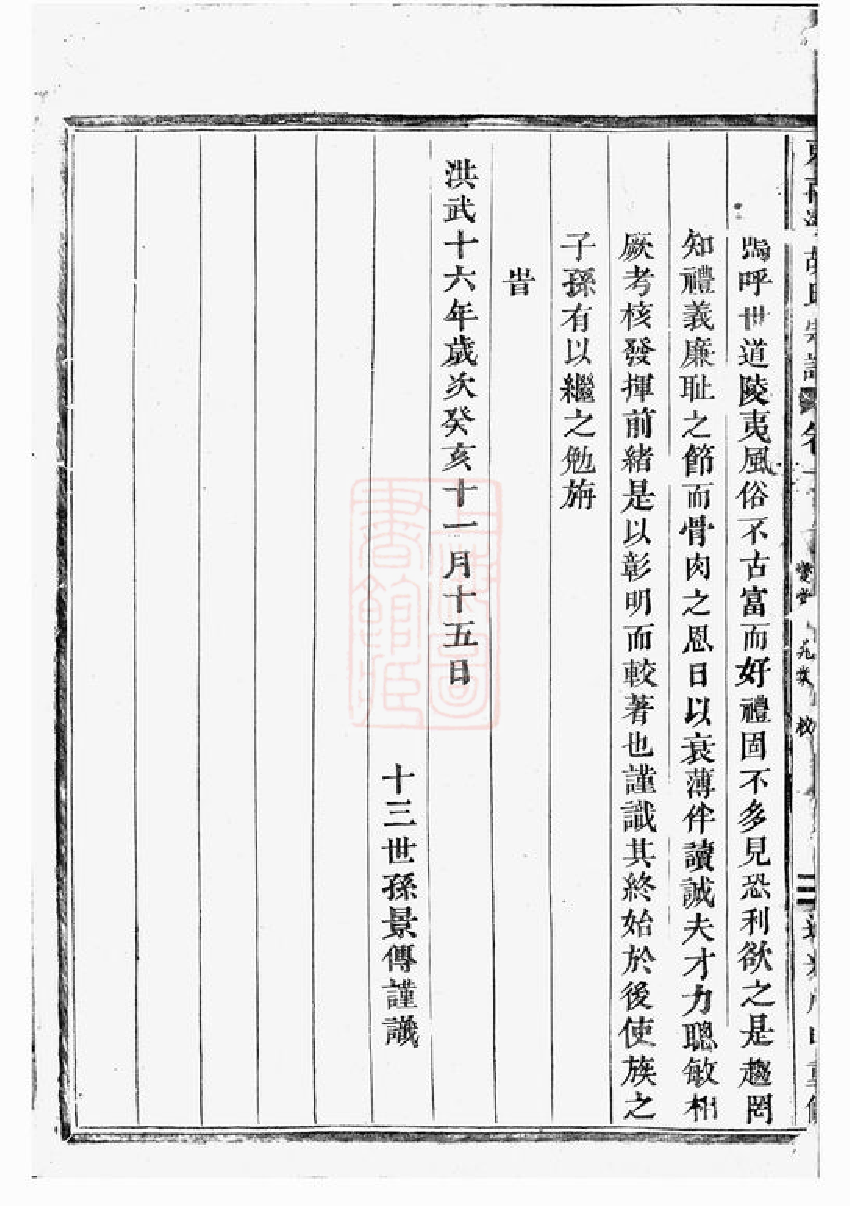 嗚呼世道陵夷風俗不古富而好禮固不多見恐利欲之是趨罔
知禮義廉耻之節而骨肉之恩日以衰薄伴讀誠夫才力聰敏相
厥考核發揮前緒是以彰明而較著也謹識其終始於後使族之
子孫有以繼之勉旃
旹
洪武十六年歲次癸亥十一月十五日
十三世孫景傳謹識
上海圖
書館藏